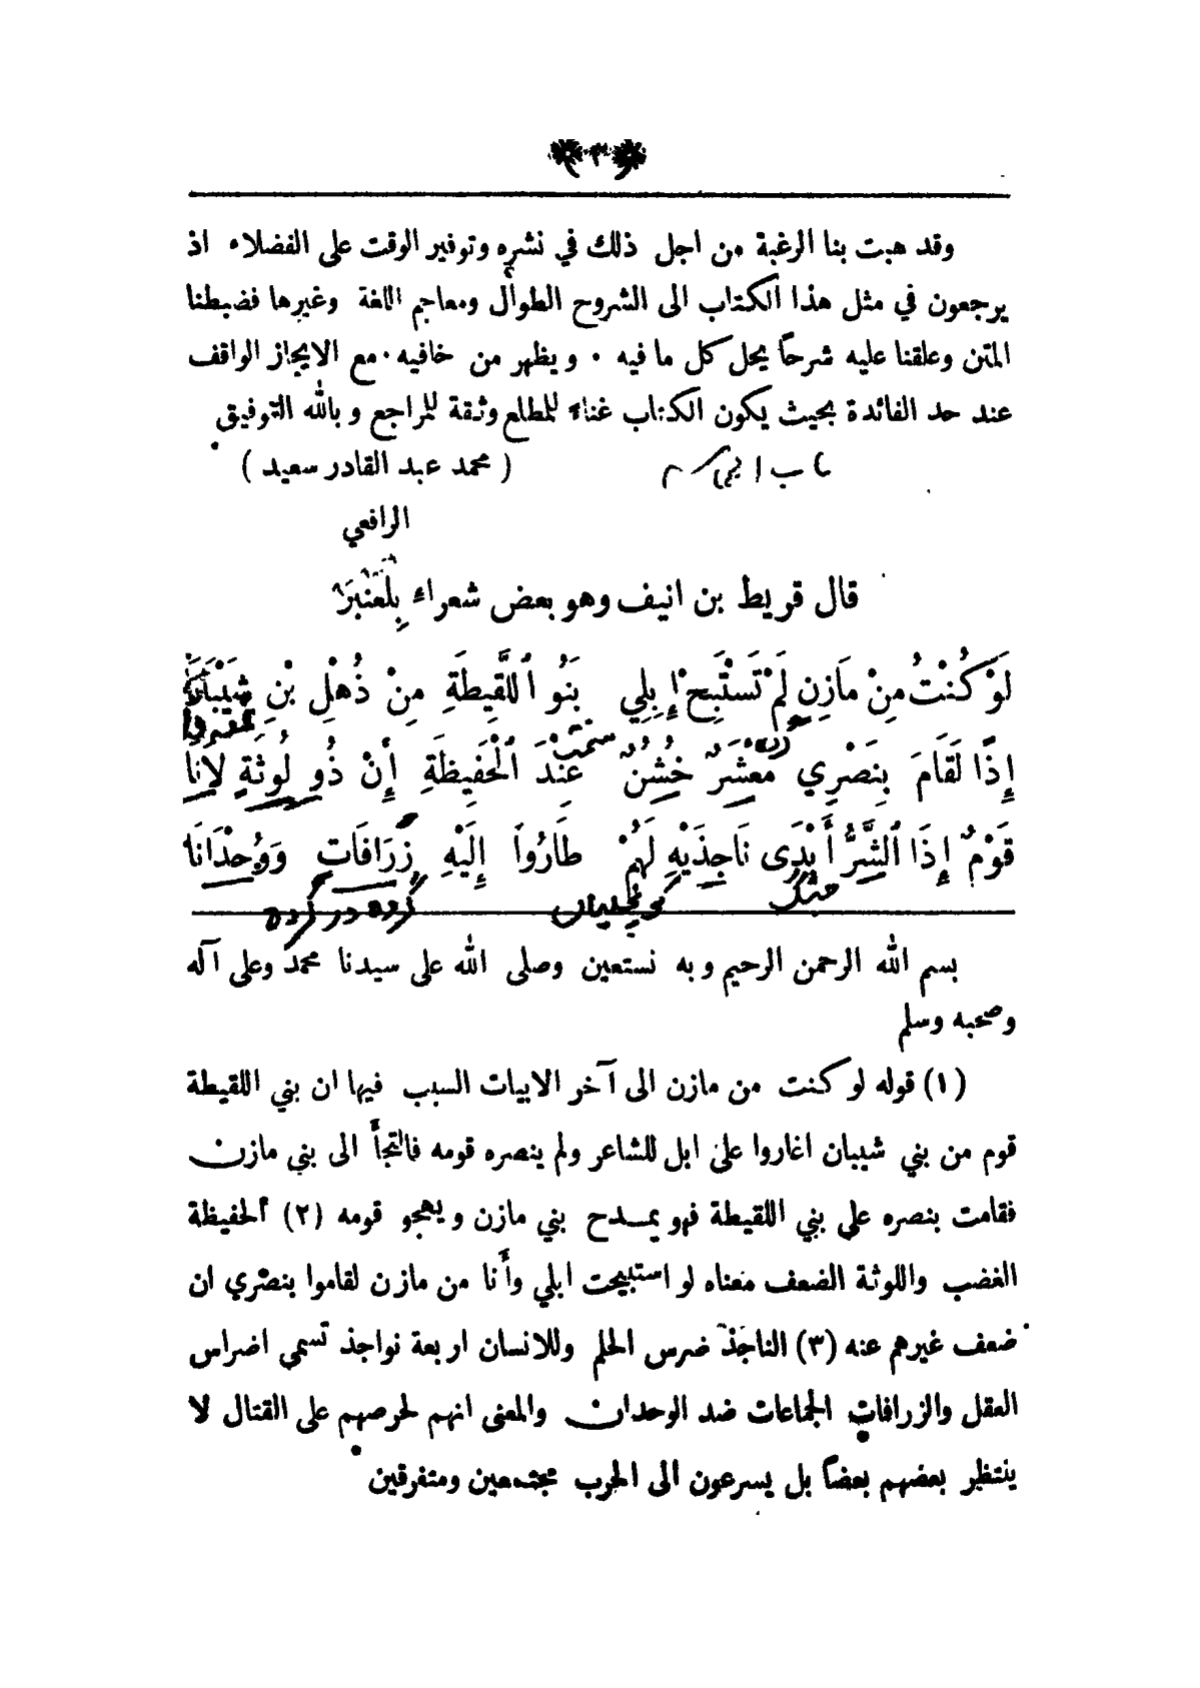 ٣
وقد هبت بنا الرغبة من اجل ذلك في نشره وتوفير الوقت على الفضلاء اذ
يرجعون في مثل هذا الكتاب الى الشروح الطوال ومعاجم اللغة وغيرها فضبطنا
المتن وعلقنا عليه شرحاً يحل كل ما فيه ٠ ويظهر من خافيه ٠ مع الايجاز الواقف
عند حد الفائدة بحيث يكون الكتاب غناء للمطلع وثقة للمراجع وبالله التوفيق
( محمد عبد القادر سعيد )
الرافعي
قال قريط بن انيف وهو بعض شعراء بِلْعَنْبَرَ
لَوْ كُنْتُ مِنْ مَازِنٍ لَمْ تَسْتَبِحْ إِبِلِي بَنُو ٱللَّقِيطَةِ مِنْ ذُهْلِ بْنِ شَيْبَانَا
إِذًا لَقَامَ بِنَصْرِي مَعْشَرٌ خُشُنٌ عِنْدَ ٱلْحَفِيظَةِ إِنْ ذُو لُوثَةٍ لاَنَا
قَوْمٌ إِذَا ٱلشَّرُّ أَبْدَى نَاجِذَيْهِ لَهُمْ طَارُوا إِلَيْهِ زَرَافَاتٍ وَوُحْدَانَا
گروه در گروه
بسم الله الرحمن الرحيم وبه نستعين وصلى الله على سيدنا محمد وعلى آله
وصحبه وسلم
(١) قوله لو كنت من مازن الى آخر الابيات السبب فيها ان بني اللقيطة
قوم من بني شيبان اغاروا على ابل للشاعر ولم ينصره قومه فالتجأ الى بني مازن
فقامت بنصره على بني اللقيطة فهو يمدح بني مازن ويهجو قومه (٢) الحفيظة
الغضب واللوثة الضعف معناه لو استبيحت ابلي وأنا من مازن لقاموا بنصري ان
ضعف غيرهم عنه (٣) الناجذ ضرس الحلم وللانسان اربعة نواجذ تسمى اضراس
العقل والزرافات الجماعات ضد الوحدان والمعنى انهم لحرصهم على القتال لا
ينتظر بعضهم بعضاً بل يسرعون الى الحرب مجتمعين ومتفرقين